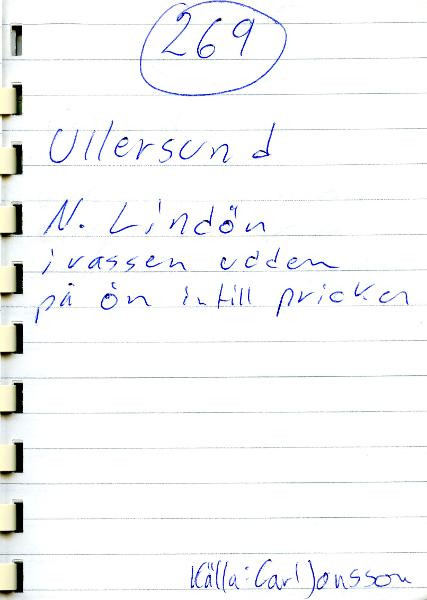 269
Ullersund
N. Lindön
i vassen udden
på ön intill pricken
Källa: Carl Jonsson